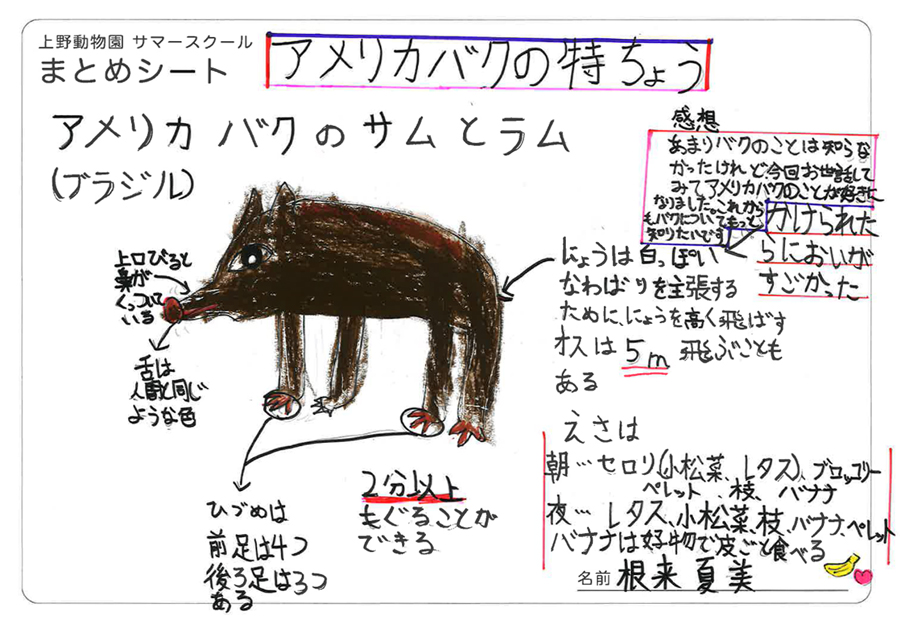 上野動物園 サマースクール
まとめシート
アメリカバクの特ちょう
アメリカ バク の サム と ラム
(ブラジル)
感想
あまりバクのことは知らな
かったけれど、今回お世話して
みてアメリカバクのことが好きに
なりました。これから
もバクについてもっと
知りたいです
かけられた
らにおいが
すごかった
上口びると
鼻が
くっついて
いる
舌は
人間と同じ
ような色
にょうは白っぽい
なわばりを主張する
ために、にょうを高く飛ばす
オスは5m飛ぶことも
ある
えさは
朝…セロリ(小松菜、レタス)、ブロッコリー
ペレット、枝、バナナ
夜…レタス、小松菜、枝、バナナ、ペレット
バナナは好物で皮ごと食べる
ひづめは
前足は4つ
後ろ足は3つ
ある
2分以上
もぐることが
できる
名前 根来 夏美